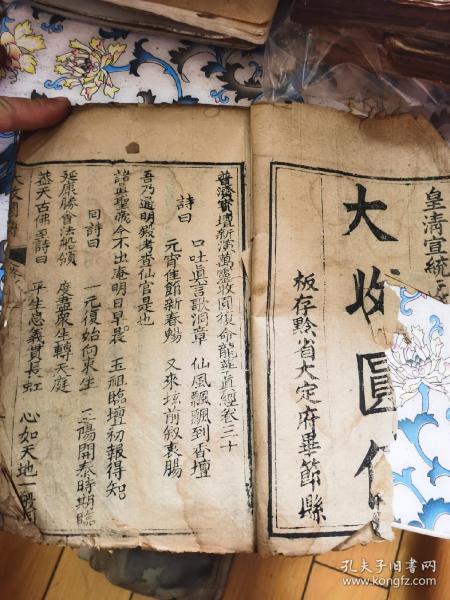 皇清宣統
大收圓
板存黔省大定府畢節縣
普濟寶壇新演萬靈收圓復命龍華真經卷二十
詩曰 口吐真言歌洞章 仙風飄飄到香壇
元宵佳節新春賜 又來壇前敘衷腸
吾乃
考香仙官是也
諸真聖
今不出奏明日早晨 玉祖臨壇初報得知
同詩曰 一元復始向東生 三陽開泰時期臨
延康勝會法船領 度盡眾生轉天庭
蓋天古佛至詩曰 平生忠義貫長虹 心如天地一
孔夫子旧书网
www.kongfz.com